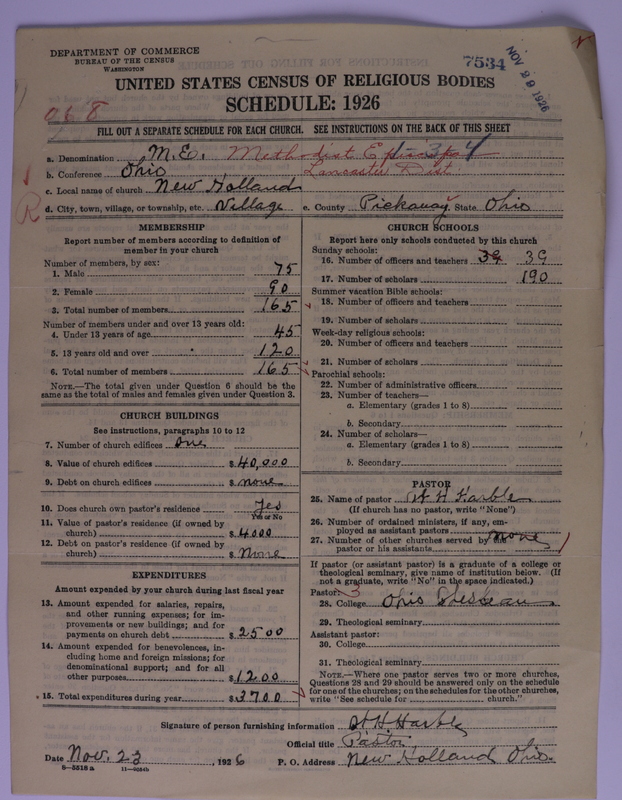 DEPARTMENT OF COMMERCE
BUREAU OF THE CENSUS
WASHINGTON
7534
NOV 29 1926
UNITED STATES CENSUS OF RELIGIOUS BODIES
SCHEDULE: 1926
068
FILL OUT A SEPARATE SCHEDULE FOR EACH CHURCH. SEE INSTRUCTIONS ON THE BACK OF THIS SHEET
a. Denomination M.E. Methodist Episcopal 1-3-4
b. Conference Ohio Lancaster Dist
c. Local name of church New Holland
R
d. City, town, village, or township, etc. Village e. County Pickaway State Ohio
MEMBERSHIP
Report number of members according to definition of
member in your church
Number of members, by sex:
1. Male 75
2. Female 90
3. Total number of members 165
Number of members under and over 13 years old:
4. Under 13 years of age 45
5. 13 years old and over 120
6. Total number of members 165
NOTE.—The total given under Question 6 should be the
same as the total of males and females given under Question 3.
CHURCH BUILDINGS
See instructions, paragraphs 10 to 12
7. Number of church edifices One
8. Value of church edifices $ 40,000
9. Debt on church edifices $ none
10. Does church own pastor's residence Yes
Yes or No
11. Value of pastor's residence (if owned by
church) $ 4000
12. Debt on pastor's residence (if owned by
church) $ None
EXPENDITURES
Amount expended by your church during last fiscal year
13. Amount expended for salaries, repairs,
and other running expenses; for im-
provements or new buildings; and for
payments on church debt $ 2500
14. Amount expended for benevolences, in-
cluding home and foreign missions; for
denominational support; and for all
other purposes $ 1200
15. Total expenditures during year $ 3700
CHURCH SCHOOLS
Report here only schools conducted by this church
Sunday schools:
16. Number of officers and teachers 39 39
17. Number of scholars 190
Summer vacation Bible schools:
18. Number of officers and teachers
19. Number of scholars
Week-day religious schools:
20. Number of officers and teachers
21. Number of scholars
Parochial schools:
22. Number of administrative officers
23. Number of teachers—
a. Elementary (grades 1 to 8)
b. Secondary
24. Number of scholars—
a. Elementary (grades 1 to 8)
b. Secondary
PASTOR
25. Name of pastor H H
(If church has no pastor, write "None")
26. Number of ordained ministers, if any, em-
ployed as assistant pastors
27. Number of other churches served by the none
pastor or his assistants
If pastor (or assistant pastor) is a graduate of a college or
theological seminary, give name of institution below. (If
not a graduate, write "No" in the space indicated.)
Pastor: 3
28. College Ohio
29. Theological seminary
Assistant pastor:
30. College
31. Theological seminary
NOTE.—Where one pastor serves two or more churches,
Questions 28 and 29 should be answered only on the schedule
for one of the churches; on the schedules for the other churches,
write "See schedule for church."
Signature of person furnishing information H H
Official title Pastor
Date Nov. 23, 1926 P. O. Address New Holland Ohio.